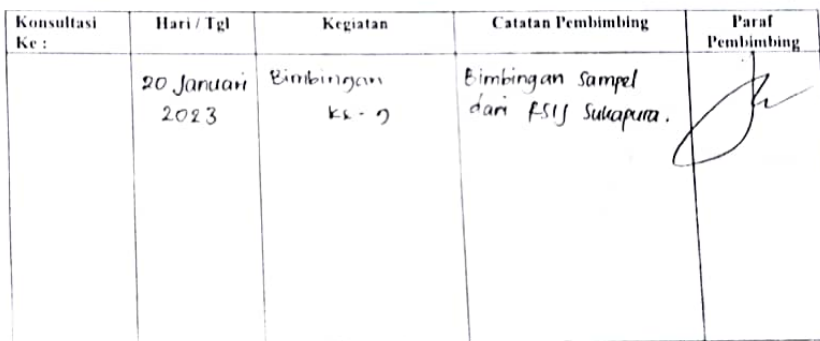 Konsultasi Ke :
Hari / Tgl
Kegiatan
Catatan Pembimbing
Paraf Pembimbing
20 Januari 2023
Bimbingan
Bimbingan Sampel
dari RSIJ Sukapura.